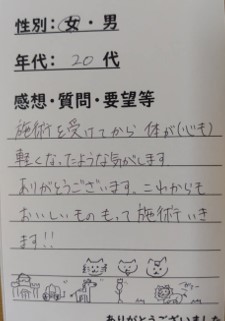 性別:女・男
年代: 20 代
感想・質問・要望等
施術を受けてから 体が(心も)
軽くなったような気がします
ありがとうございます。これからも
おいしいもの もって 施術 いき
ます!!
ありがとうございました